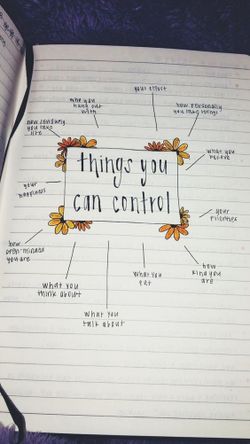 your effort
who you
hang out
with
how personally
you take things
how seriously
you take
life
what you
believe
things you
can control
your
happiness
your
priorities
how
open-minded
you are
how
kind you
are
what you
think about
what you
eat
what you
talk about